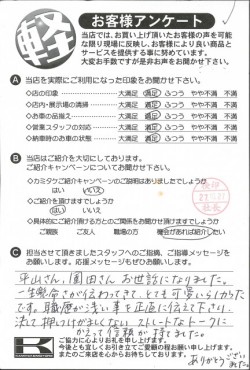 軽
お客様アンケート
当店では、お買い上げ頂いたお客様の声を可能
な限り現場に反映し、お客様により良い商品と
サービスを提供する事に努めています。
大変お手数ですが是非お声をお聞かせ下さい。
A 当店を実際にご利用になった印象をお聞かせ下さい。
◇店の印象 大満足 満足 ふつう やや不満 不満
◇店内・展示場の清掃 大満足 満足 ふつう やや不満 不満
◇お車の品揃え 大満足 満足 ふつう やや不満 不満
◇営業スタッフの対応 大満足 満足 ふつう やや不満 不満
◇納車時のお車の状態 大満足 満足 ふつう やや不満 不満
B 当店はご紹介を大切にしております。
ご紹介キャンペーンについてお聞かせ下さい。
◇カミタケご紹介キャンペーンのご説明はありましたでしょうか
はい いいえ
◇ご紹介を頂けますでしょうか
はい いいえ
◇具体的にご紹介頂ける方とのご関係をお聞かせ頂けますでしょうか
ご親族 ご友人 職場の方 機会があれば紹介したい
C 担当させて頂きましたスタッフへのご指摘、ご指導メッセージを
お願いします。応援メッセージもぜひお願いします。
平山さん、園田さん お世話になりました。
一生懸命さが伝わってきて、とても可愛らしかった
です。職歴が浅い事を正直に伝えて下さい
決して押しつけがましくない、ストレートなトークに
かえって信頼が持てました。
ありがとうござい
ました
ご協力に心よりお礼を申し上げます。
今後とも宜しくお引き立てご愛顧の程お願い申し上げます。
またのご来店を心からお待ちしております。
K